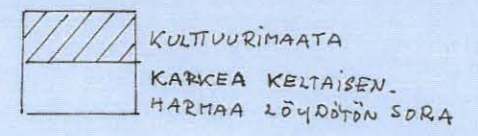 KULTTUURIMAATA
KARKEA KELTAISEN-
HARMAA LÖYDÖTÖN SORA